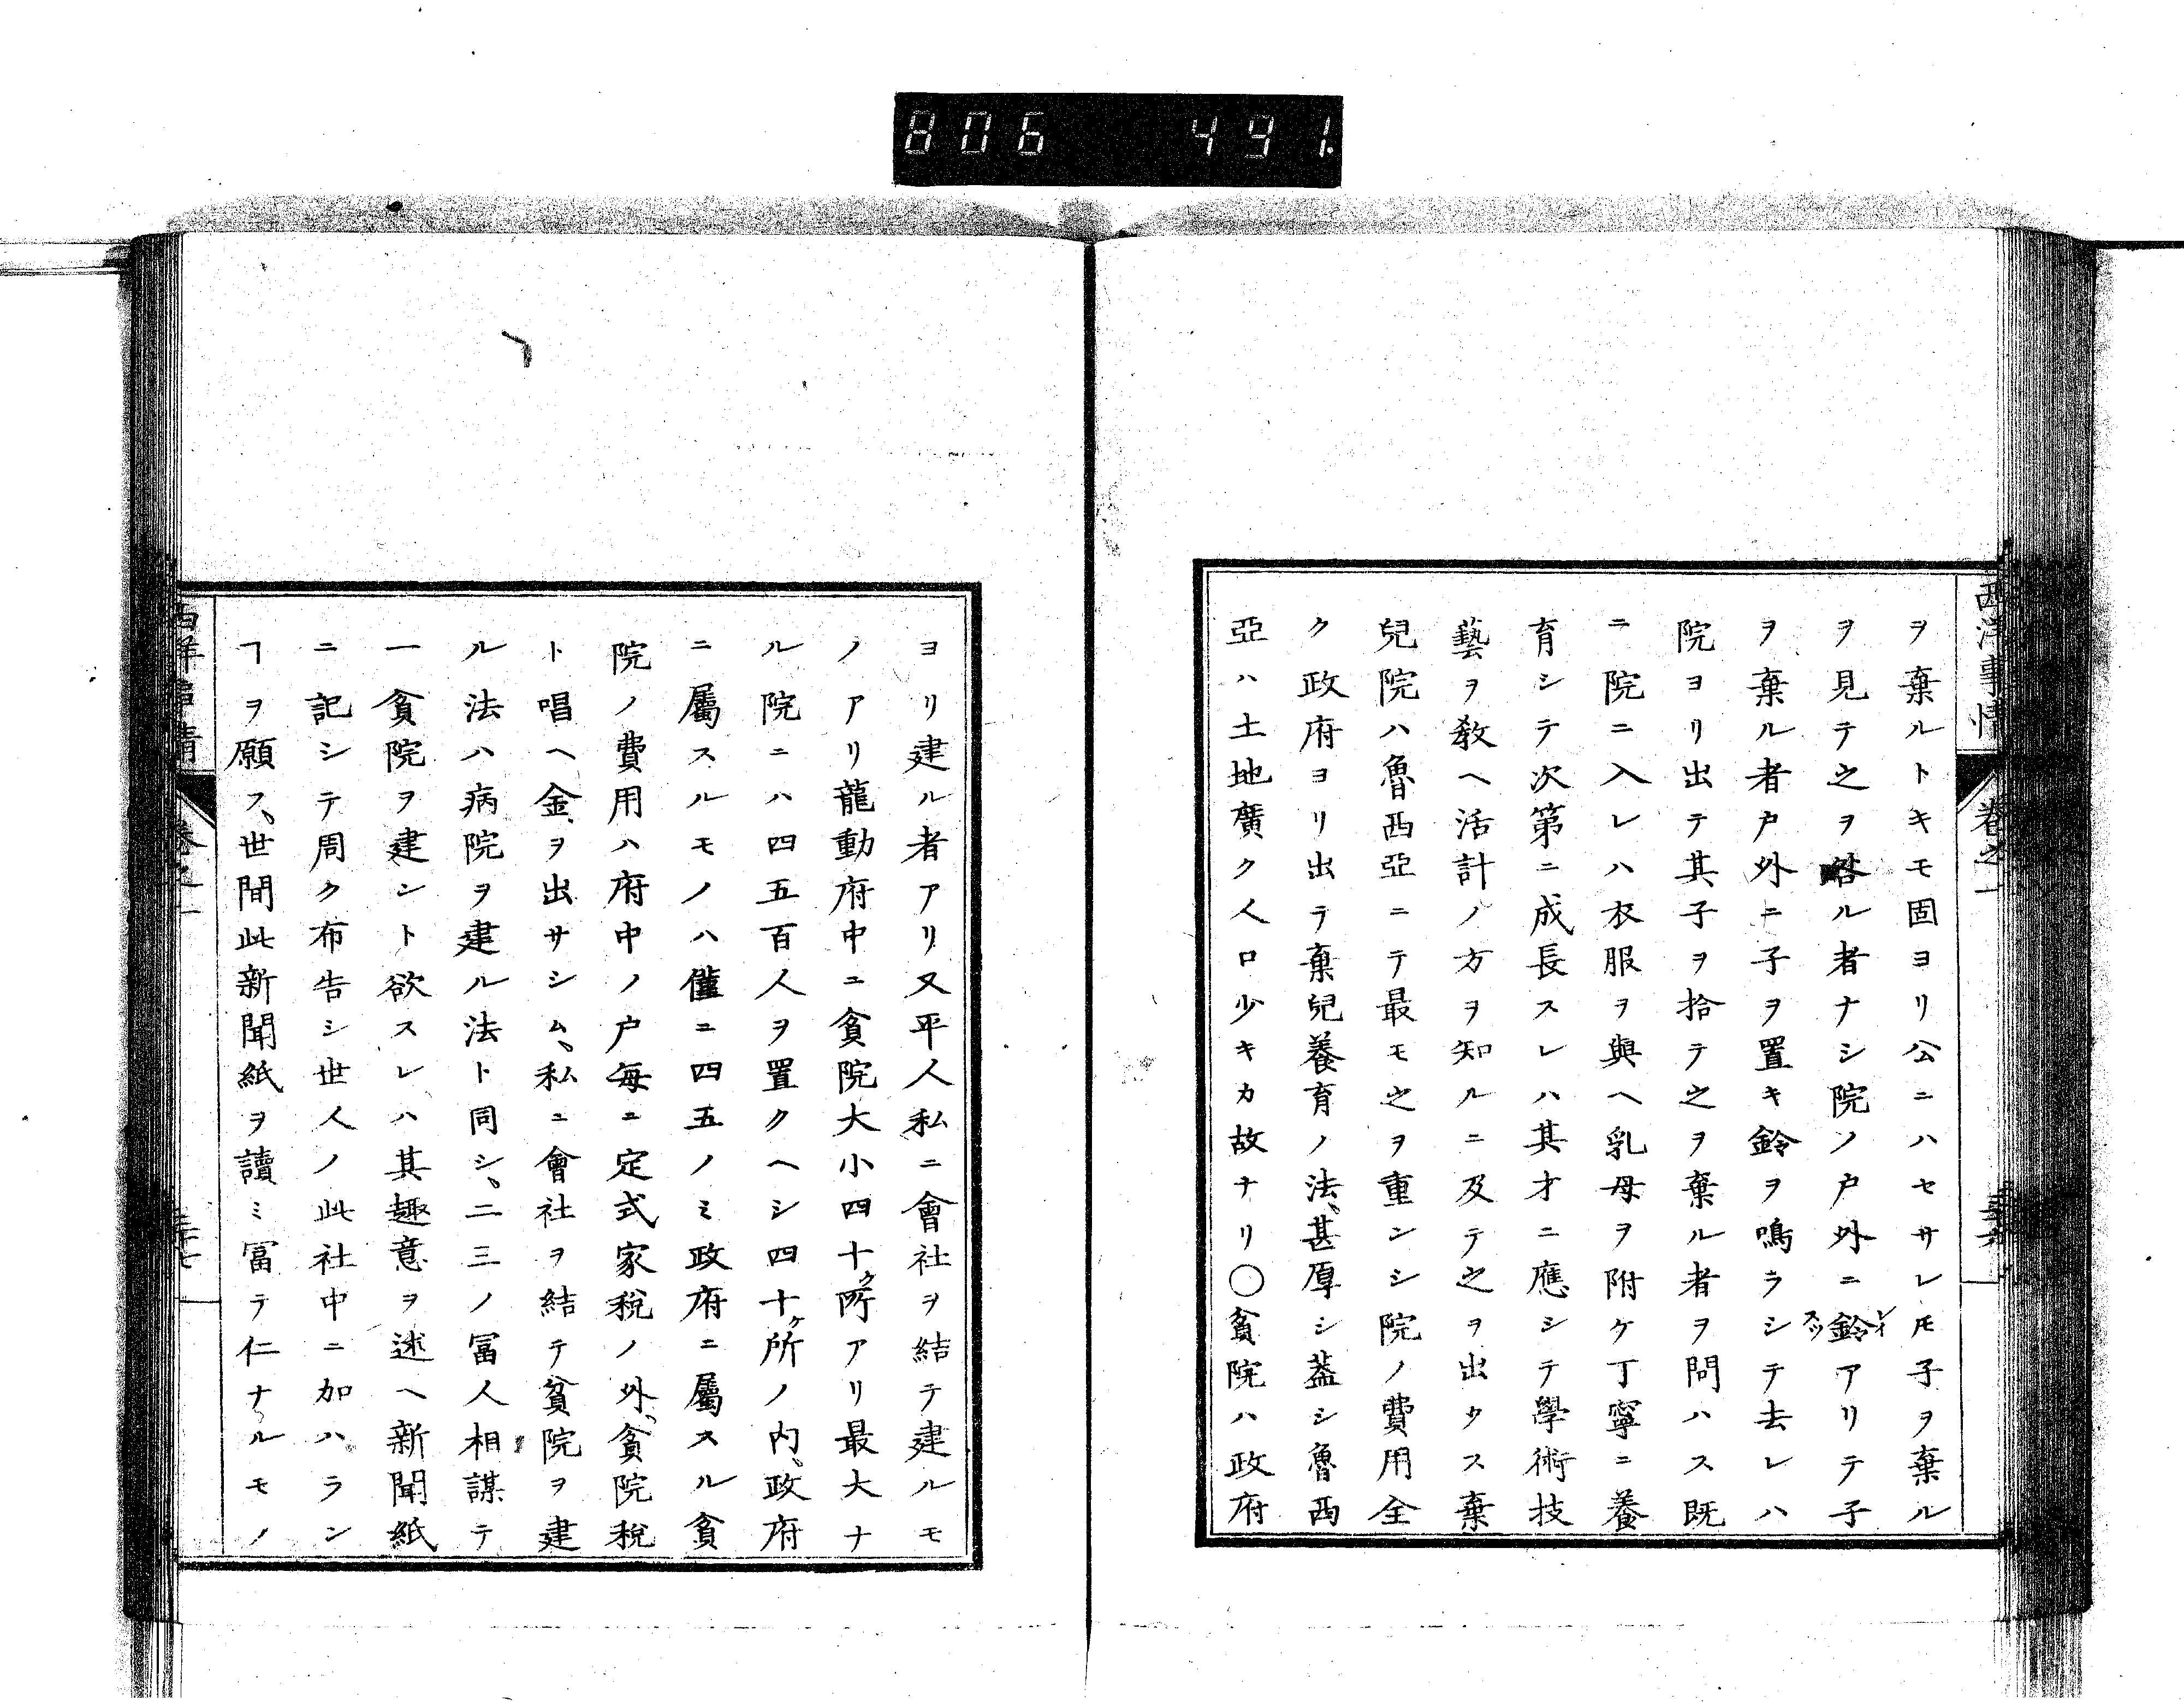 806 491.
西洋事情 卷之一
ヲ棄ルトキモ固ヨリ公ニハセサレ𪜈子ヲ棄ル
ヲ見テ之ヲ咎ル者ナシ院ノ戸外ニ鈴アリテ子
ヲ棄ル者戸外ニ子ヲ置キ鈴ヲ鳴ラシテ去レハ
院ヨリ出テ其子ヲ拾テ之ヲ棄ル者ヲ問ハス既
ニ院ニ入レハ衣服ヲ與ヘ乳母ヲ附ケ丁寧ニ養
育シテ次第ニ成長スレハ其才ニ應シテ學術技
藝ヲ教ヘ活計ノ方ヲ知ルニ及テ之ヲ出タス棄
兒院ハ魯西亞ニテ最モ之ヲ重ンシ院ノ費用全
ク政府ヨリ出テ棄兒養育ノ法、甚厚シ蓋シ魯西
亞ハ土地廣ク人口少キカ故ナリ〇貧院ハ政府
ヨリ建ル者アリ又平人私ニ會社ヲ結テ建ルモ
ノアリ龍動府中ニ貧院大小四十ケ所アリ最大ナ
ル院ニハ四五百人ヲ置クヘシ四十ケ所ノ内、政府
ニ屬スルモノハ僅ニ四五ノミ政府ニ屬スル貧
院ノ費用ハ府中ノ戸毎ニ定式家税ノ外、貧院税
ト唱ヘ金ヲ出サシム、私ニ會社ヲ結テ貧院ヲ建
ル法ハ病院ヲ建ル法ト同シ、二三ノ冨人相謀テ
一貧院ヲ建ント欲スレハ其趣意ヲ述ヘ新聞紙
ニ記シテ周ク布告シ世人ノ此社中ニ加ハラン
ヿヲ願フ、世間此新聞紙ヲ讀ミ冨テ仁ナルモノ
西洋事情 卷之一 三十七